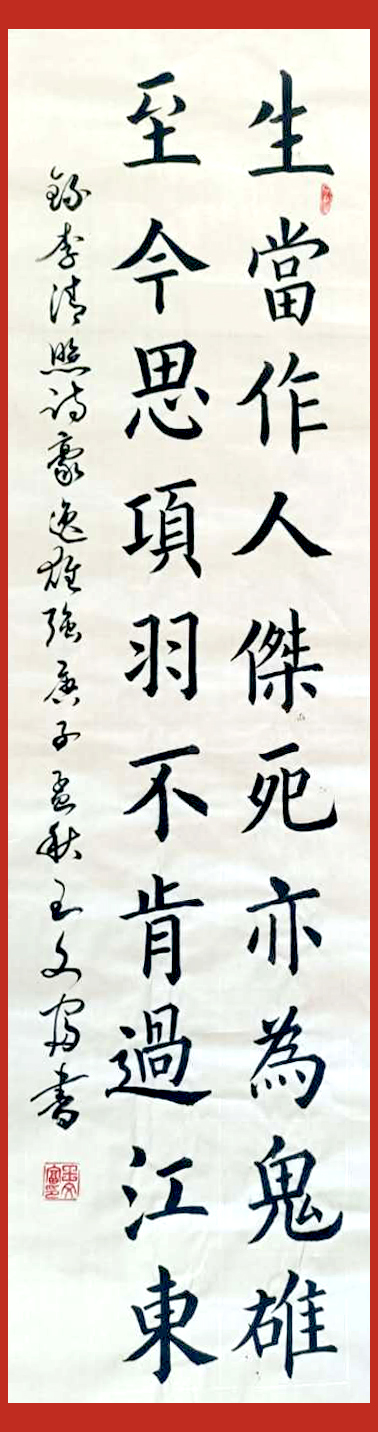 生當作人傑死亦為鬼雄
至今思項羽不肯過江東
錄李清照詩豪逸雄强庚子孟秋王文富書